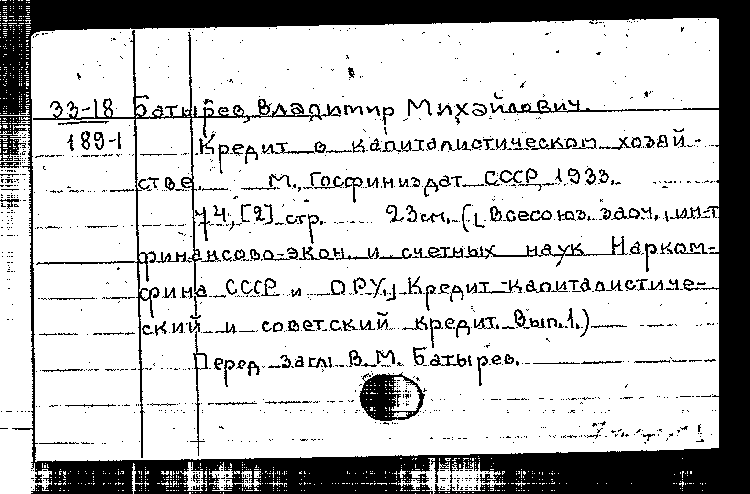 33-18 Батырев, Владимир Михайлович.
189-1 Кредит в капиталистическом хозяй-
стве. М., Госфиниздат СССР, 1933.
74, [2] стр. 23 см. ([Всесоюз. заоч. ин-т
финансово-экон. и счетных наук Нарком-
фина СССР и ОРУ.] Кредит капиталистиче-
ский и советский кредит. Вып. 1.)
Перед загл: В. М. Батырев.